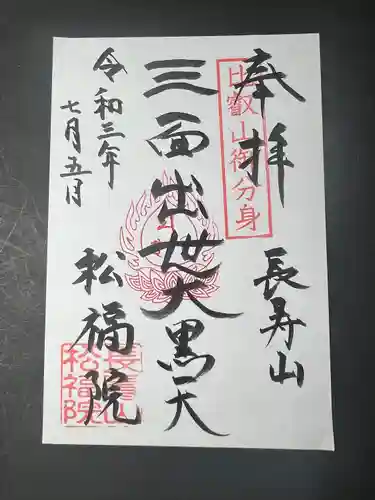 奉拝
比叡山御分身
長寿山
三面出世大黒天
令和三年
七月五月
松福院
長寿山
松福院